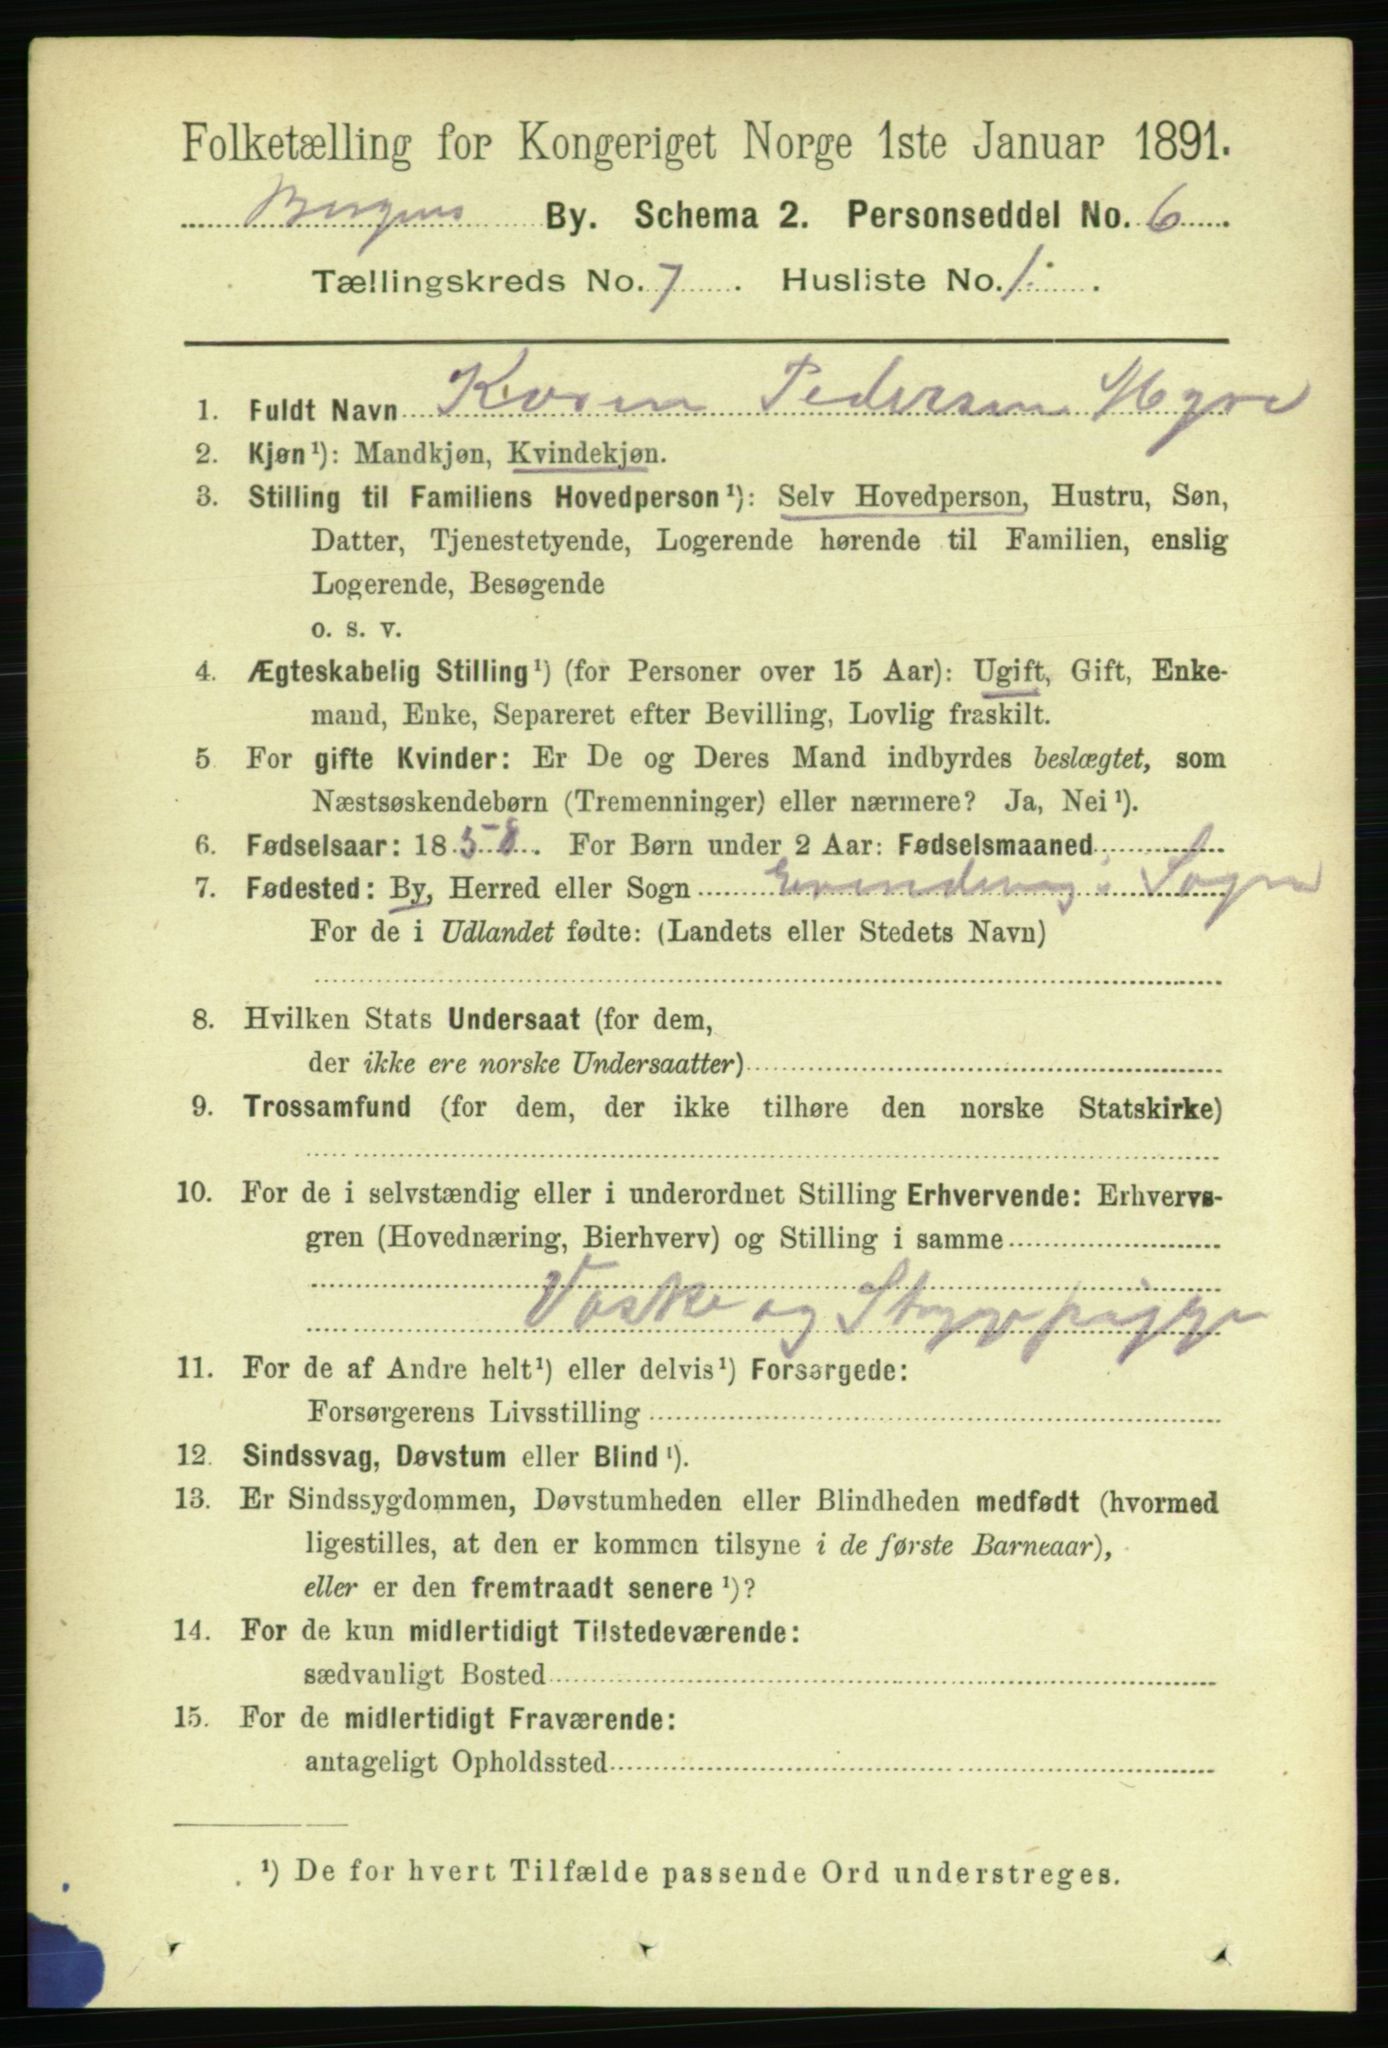 Folketælling for Kongeriget Norge 1ste Januar 1891.
Bergens By. Schema 2. Personseddel No. 6
Tællingskreds No. 7. Husliste No. 1.
1. Fuldt Navn Karen Pedersen Myre
2. Kjøn¹): Mandkjøn, Kvindekjøn.
3. Stilling til Familiens Hovedperson¹): Selv Hovedperson, Hustru, Søn,
Datter, Tjenestetyende, Logerende hørende til Familien, enslig
Logerende, Besøgende
o. s. v.
4. Ægteskabelig Stilling¹) (for Personer over 15 Aar): Ugift, Gift, Enke-
mand, Enke, Separeret efter Bevilling, Lovlig fraskilt.
5 For gifte Kvinder: Er De og Deres Mand indbyrdes beslægtet, som
Næstsøskendebørn (Tremenninger) eller nærmere? Ja, Nei¹).
6. Fødselsaar: 1858. For Børn under 2 Aar: Fødselsmaaned
7. Fødested: By, Herred eller Sogn Evindvig i Sogn
For de i Udlandet fødte: (Landets eller Stedets Navn)
8. Hvilken Stats Undersaat (for dem,
der ikke ere norske Undersaatter)
9. Trossamfund (for dem, der ikke tilhøre den norske Statskirke)
10. For de i selvstændig eller i underordnet Stilling Erhvervende: Erhvervs-
gren (Hovednæring, Bierhverv) og Stilling i samme
Vaske og Strygepige
11. For de af Andre helt¹) eller delvis¹) Forsørgede:
Forsørgerens Livsstilling
12. Sindssvag, Døvstum eller Blind¹).
13. Er Sindssygdommen, Døvstumheden eller Blindheden medfødt (hvormed
ligestilles, at den er kommen tilsyne i de første Barneaar),
eller er den fremtraadt senere¹)?
14. For de kun midlertidigt Tilstedeværende:
sædvanligt Bosted
15. For de midlertidigt Fraværende:
antageligt Opholdssted
¹) De for hvert Tilfælde passende Ord understreges.